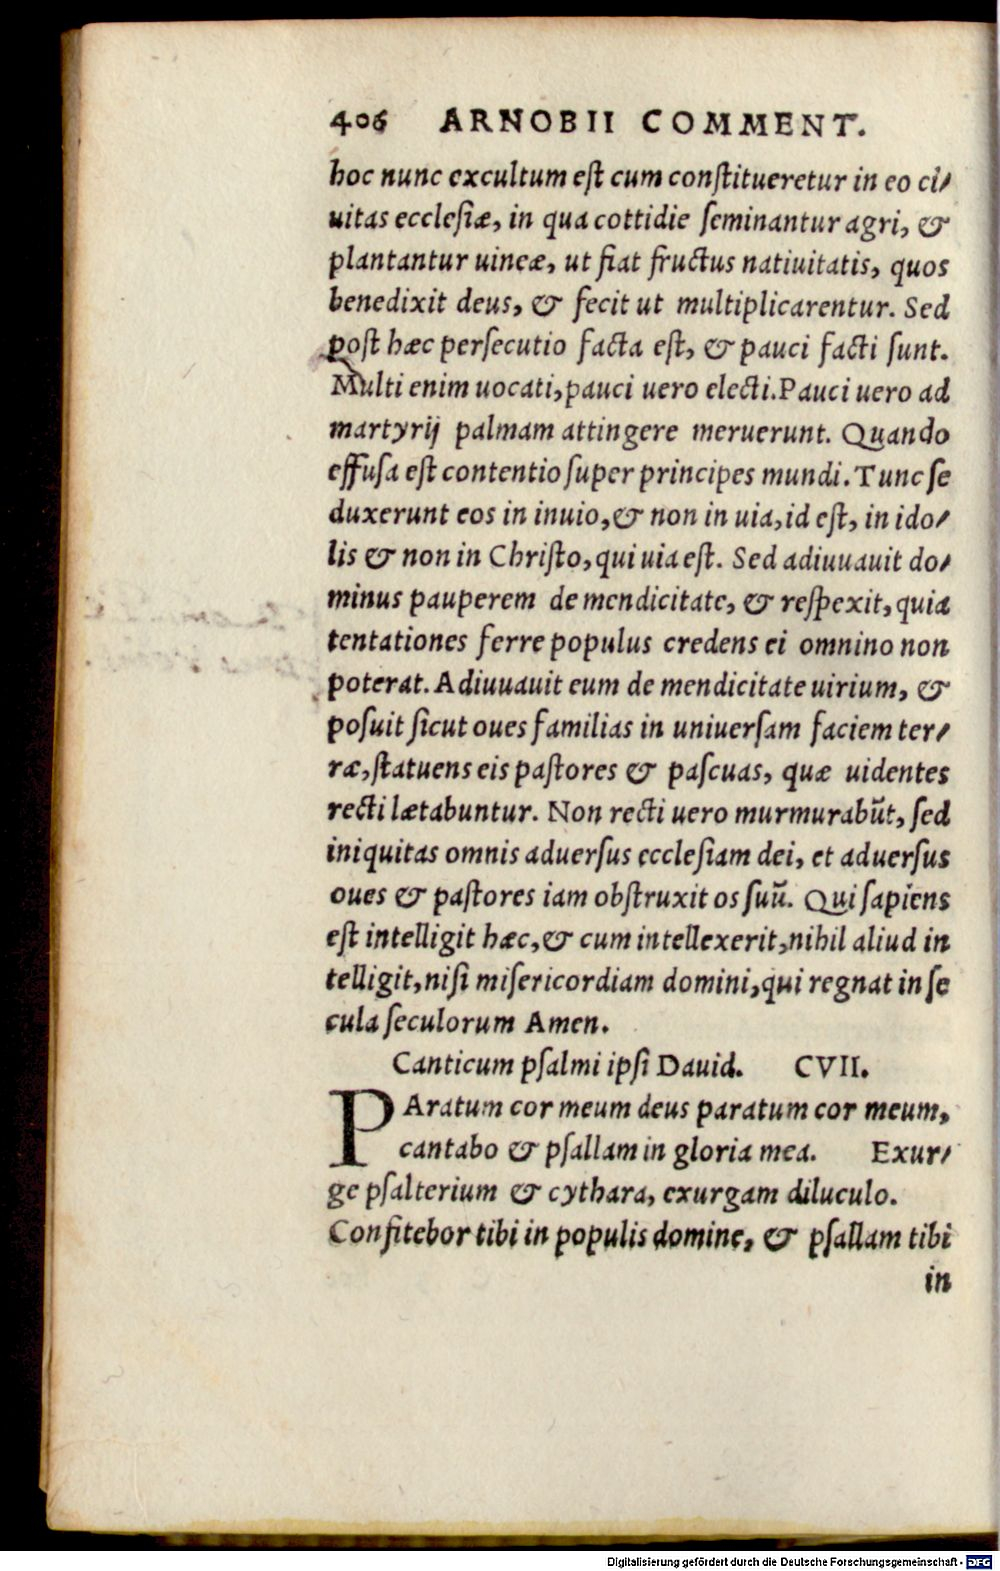 406 ARNOBII COMMENT.
hoc nunc excultum eſt cum conſtitueretur in eo ci⸗
uitas eccleſiæ, in qua cottidie ſeminantur agri, &
plantantur uineæ, ut fiat fructus natiuitatis, quos
benedixit deus, & fecit ut multiplicarentur. Sed
poſt hæc perſecutio facta eſt, & pauci facti ſunt.
Multi enim uocati, pauci uero electi. Pauci uero ad
martyrij palmam attingere meruerunt. Quando
effuſa eſt contentio ſuper principes mundi. Tunc ſe
duxerunt eos in inuio, & non in uia, id eſt, in ido⸗
lis & non in Chriſto, qui uia eſt. Sed adiuuauit do⸗
minus pauperem de mendicitate, & reſpexit, quia
tentationes ferre populus credens ei omnino non
poterat. Adiuuauit eum de mendicitate uirium, &
poſuit ſicut oues familias in uniuerſam faciem ter⸗
ræ, ſtatuens eis paſtores & paſcuas, quæ uidentes
recti lætabuntur. Non recti uero murmurabũt, ſed
iniquitas omnis aduerſus eccleſiam dei, et aduerſus
oues & paſtores iam obſtruxit os ſuũ. Qui ſapiens
eſt intelligit hæc, & cum intellexerit, nihil aliud in
telligit, niſi miſericordiam domini, qui regnat in ſe
cula ſeculorum Amen.
Canticum pſalmi ipſi Dauid. CVII.
PAratum cor meum deus paratum cor meum,
cantabo & pſallam in gloria mea. Exur⸗
ge pſalterium & cythara, exurgam diluculo.
Confitebor tibi in populis domine, & pſallam tibi
in
Digitalisierung gefördert durch die Deutsche Forschungsgemeinschaft - DFG